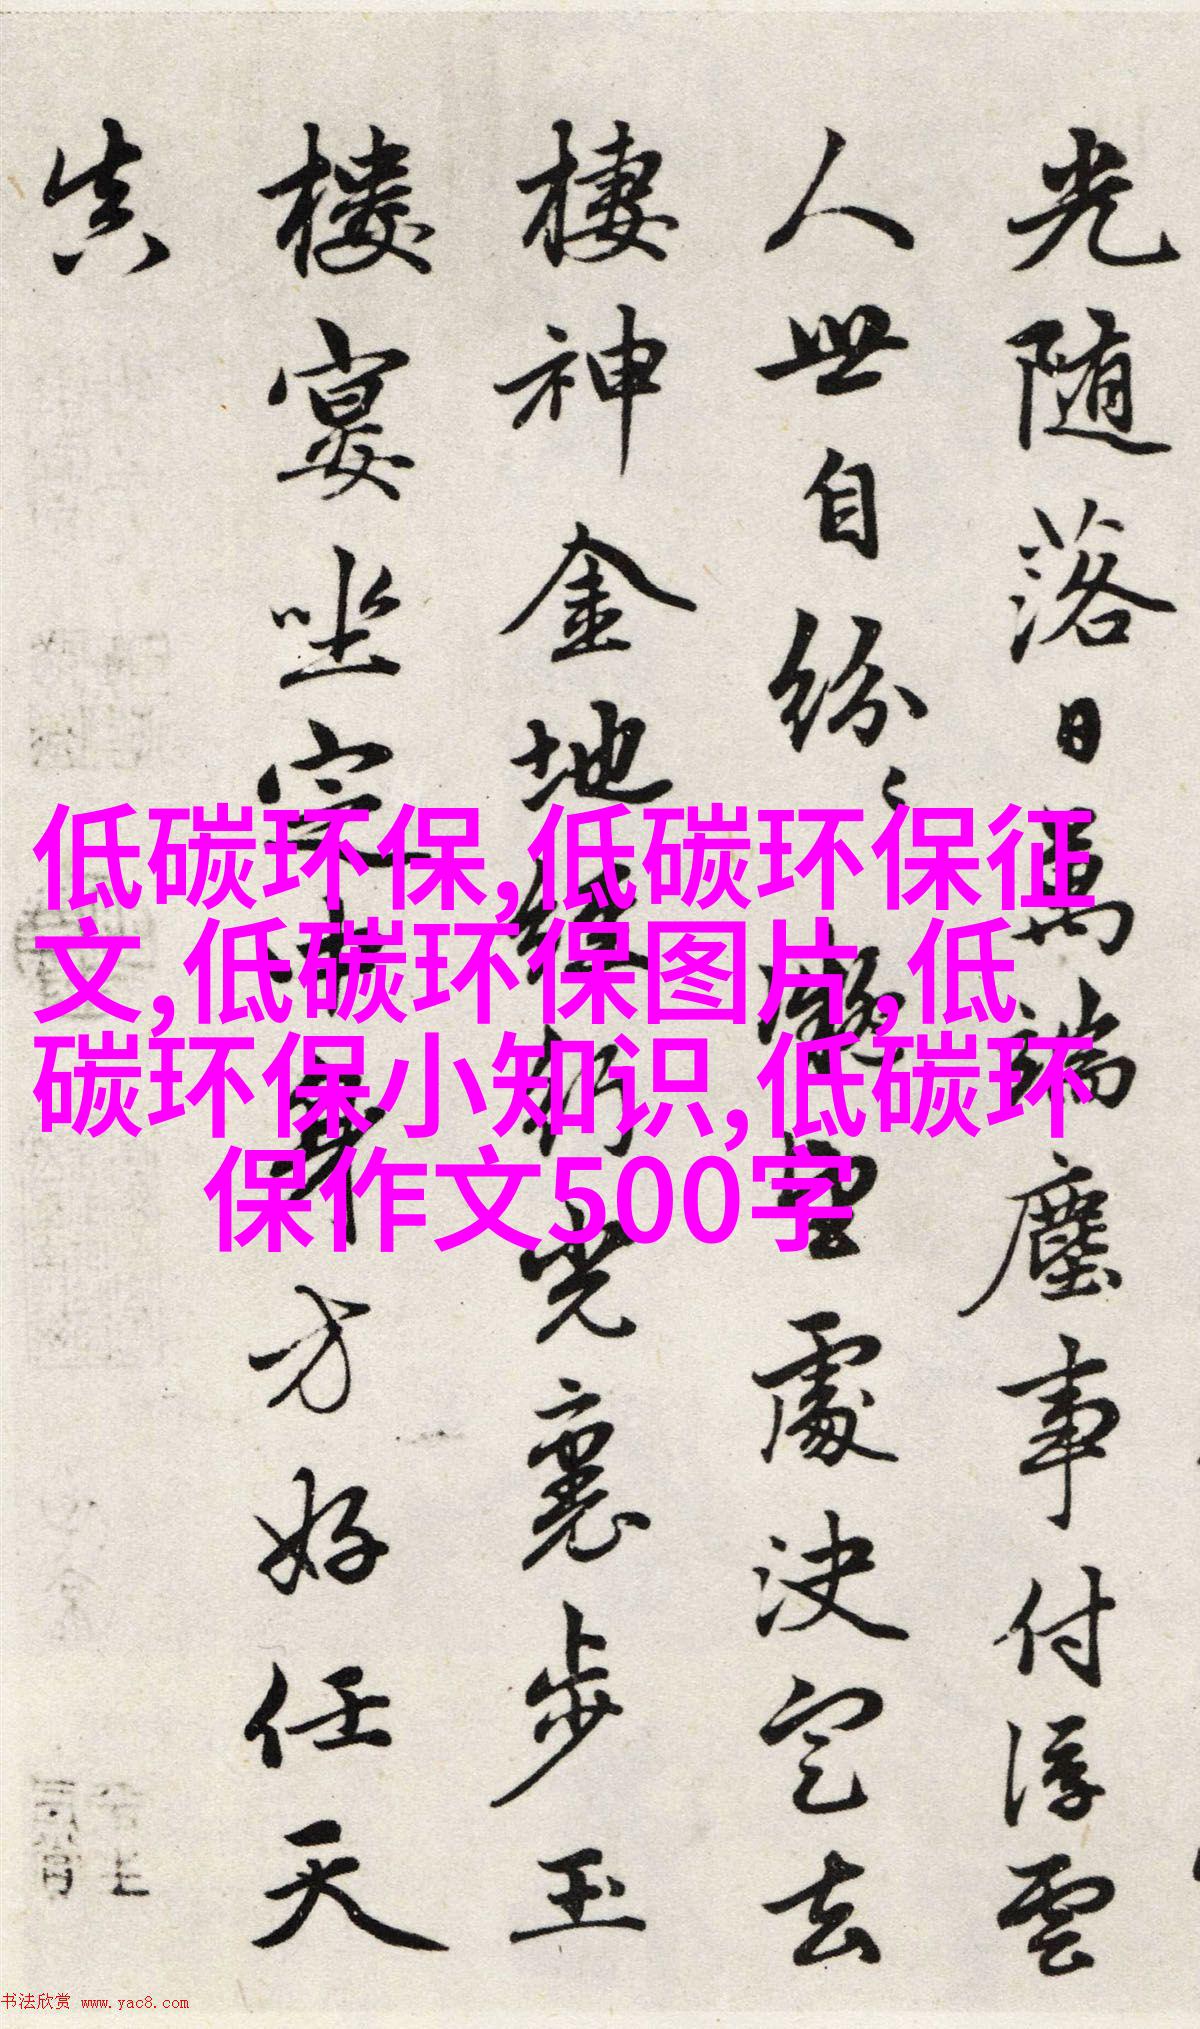 光随落日萬端塵事付浮雲
人世自紛〻凝望處決定去
棲神金地經行光裏步玉
樓宴坐定方好任天
真
低碳环保,低碳环保征
文,低碳环保图片,低
碳环保小知识,低碳环
保作文500字
书法欣赏 www.yac8.com